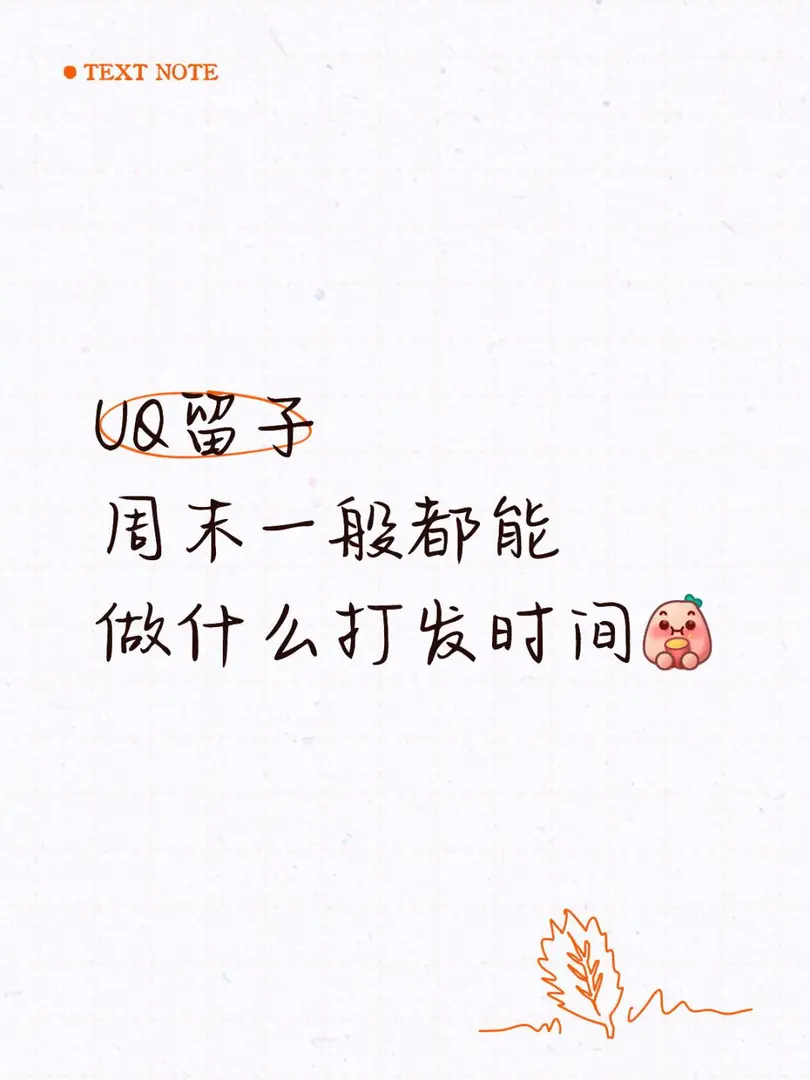 TEXT NOTE
UQ留子
周末一般都能
做什么打发时间